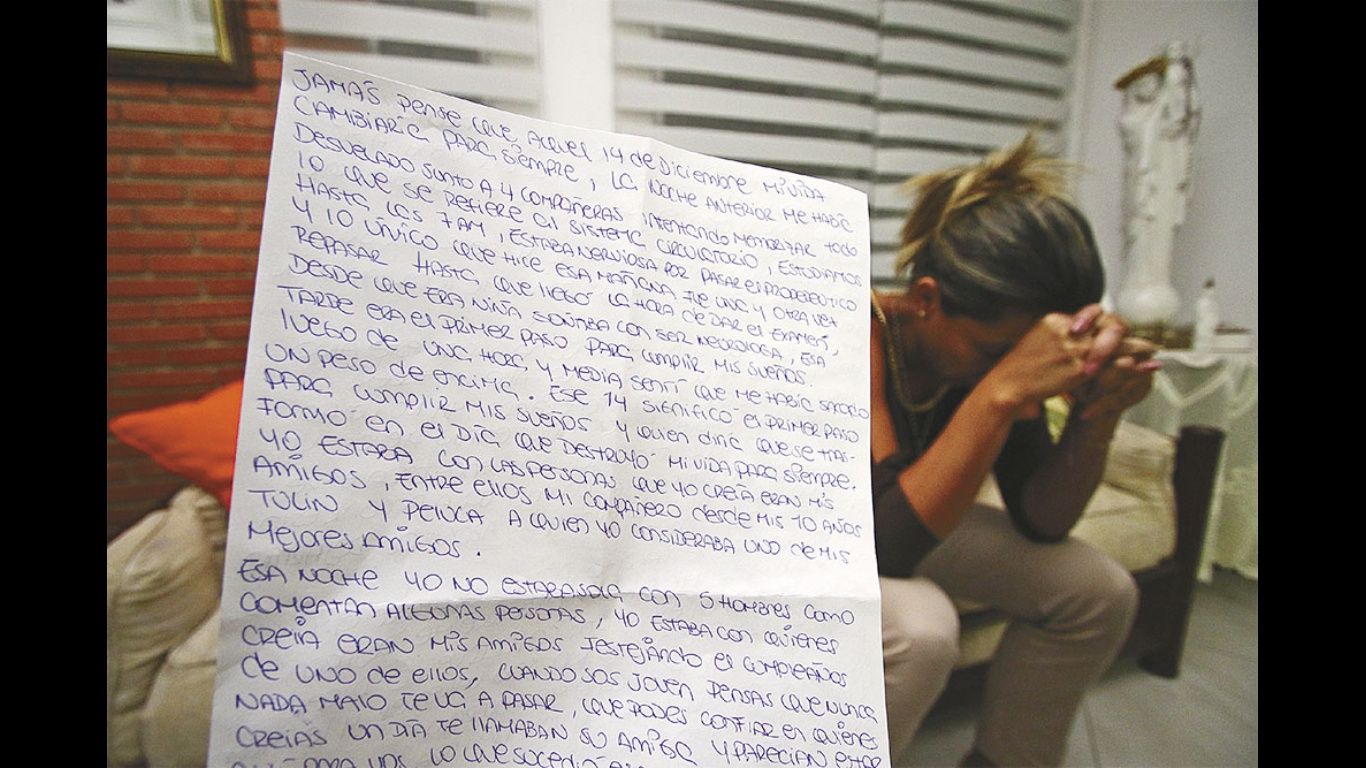 JAMAS PENSE QUE AQUEL 14 de DICIEMBRE MI VIDA
CAMBIARIA PARA SIEMPRE, LA NOCHE ANTERIOR ME HABIA
DESVELADO JUNTO A 4 COMPAÑERAS INTENTANDO MEMORIZAR TODO
LO QUE SE REFIERE AL SISTEMA CIRCULATORIO, ESTUDIAMOS
HASTA LAS 7 AM, ESTABA NERVIOSA POR PASAR EL PROPEDEUTICO
Y LO ÚNICO QUE HICE ESA MAÑANA FUE UNA Y OTRA VEZ
REPASAR HASTA QUE LLEGÓ LA HORA DE DAR EL EXAMEN,
DESDE QUE ERA NIÑA SOÑABA CON SER NEUROLOGA, ESA
TARDE ERA EL PRIMER PASO PARA CUMPLIR MIS SUEÑOS.
LUEGO DE UNA HORA Y MEDIA SENTÍ QUE ME HABÍA SACADO
UN PESO DE ENCIMA. ESE 14 SIGNIFICÓ EL PRIMER PASO
PARA CUMPLIR MIS SUEÑOS Y QUIEN DIRIA QUE SE TRAS-
FORMÓ EN EL DÍA QUE DESTRUYÓ MI VIDA PARA SIEMPRE.
YO ESTABA CON LAS PERSONAS QUE YO CREÍA ERAN MIS
AMIGOS, ENTRE ELLOS MI COMPAÑERO DESDE MIS 10 AÑOS
Y A QUIEN YO CONSIDERABA UNO DE MIS
MEJORES AMIGOS.
ESA NOCHE YO NO ESTABA SOLA CON 5 HOMBRES COMO
COMENTAN ALGUNAS PERSONAS, YO ESTABA CON QUIENES
CREÍA ERAN MIS AMIGOS FESTEJANDO EL CUMPLEAÑOS
DE UNO DE ELLOS, CUANDO SOS JOVEN PENSAS QUE NUNCA
NADA MALO TE VA A PASAR, QUE PODES CONFIAR EN QUIENES
CREIAS UN DÍA TE LLAMABAN SU AMIGA Y PARECIAN ESTAR
PARA VOS. LO QUE SUCEDIÓ